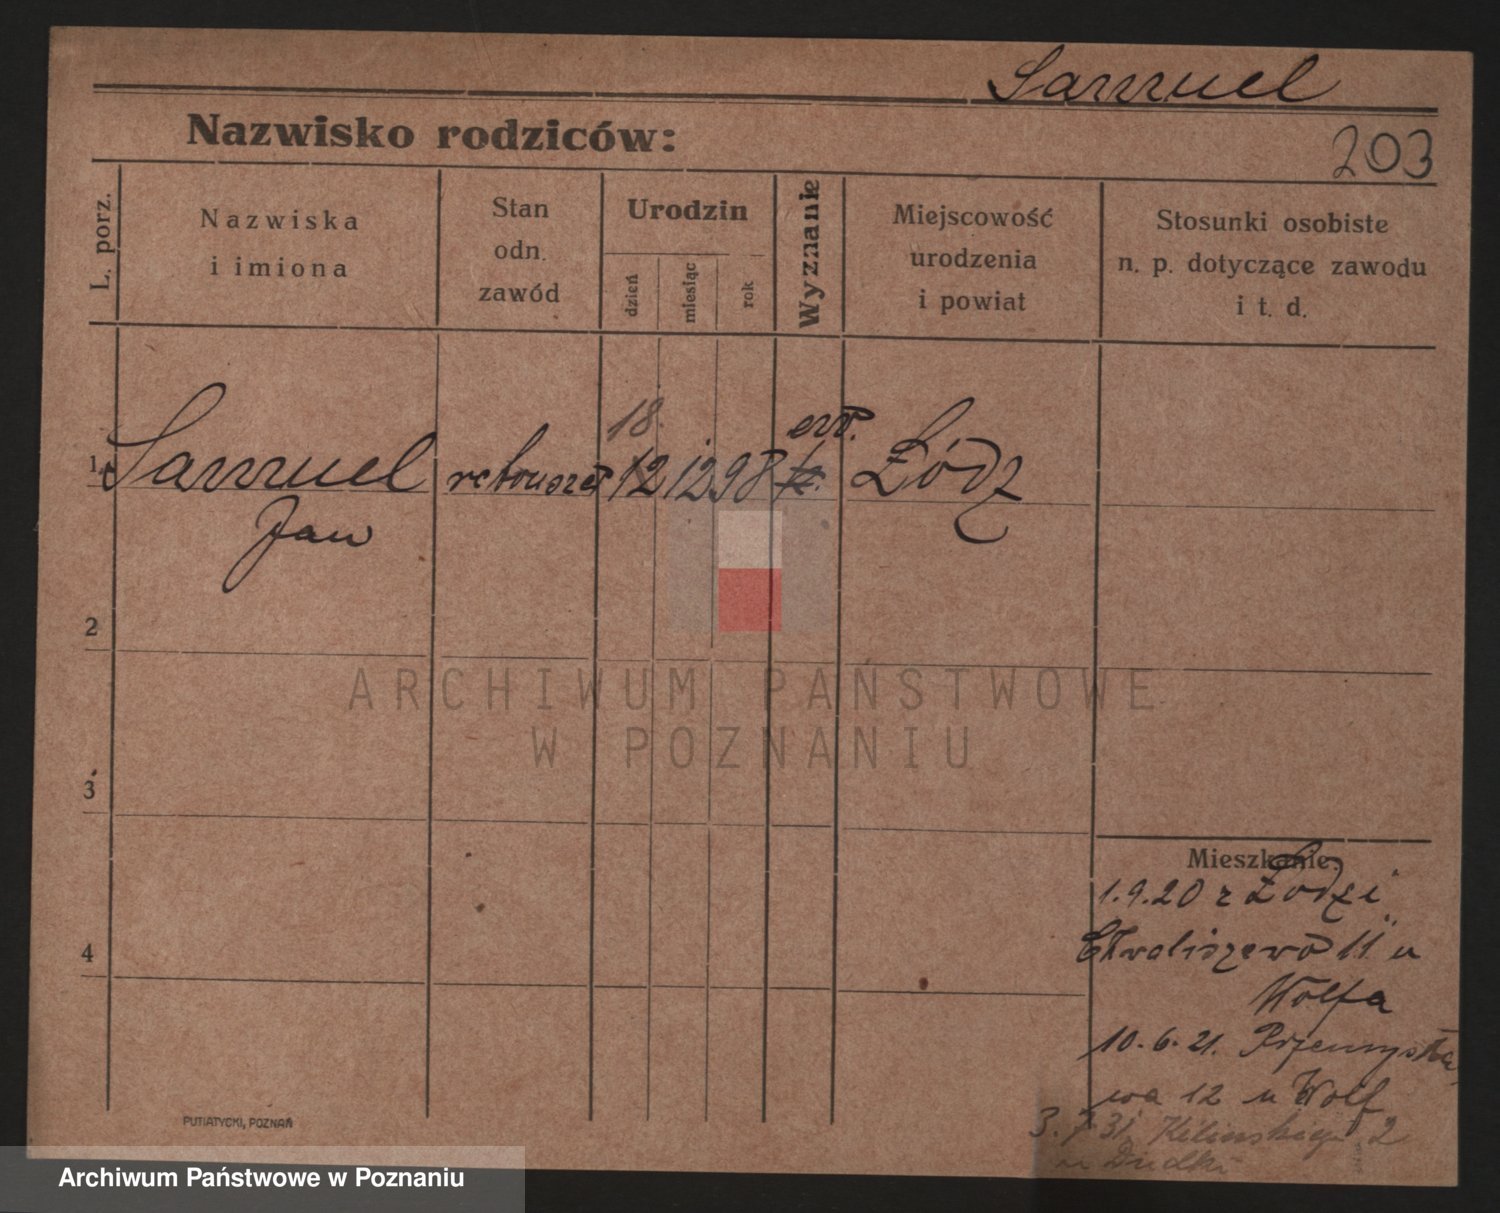 Samuel
Nazwisko rodziców:
203
L. porz.
Nazwiska
i imiona
Stan
odn.
zawód
Urodzin
dzień
miesiąc
rok
Wyznanie
Miejscowość
urodzenia
i powiat
Stosunki osobiste
n. p. dotyczące zawodu
i t. d.
18.
ew.
1. Samuel retuszer 12 12 98 Łódz
Jan
2
3
4
ARCHIWUM PAŃSTWOWE
W POZNANIU
Mieszkanie.
1.9.20 z Łodzi
Chwaliszewo 11 u
Wolfa
10.6.21. Przemysła
wa 12 u Wolf
3.7.31 Kilinskiego 2
u Dudki
PUTIATYCKI, POZNAŃ
Archiwum Państwowe w Poznaniu